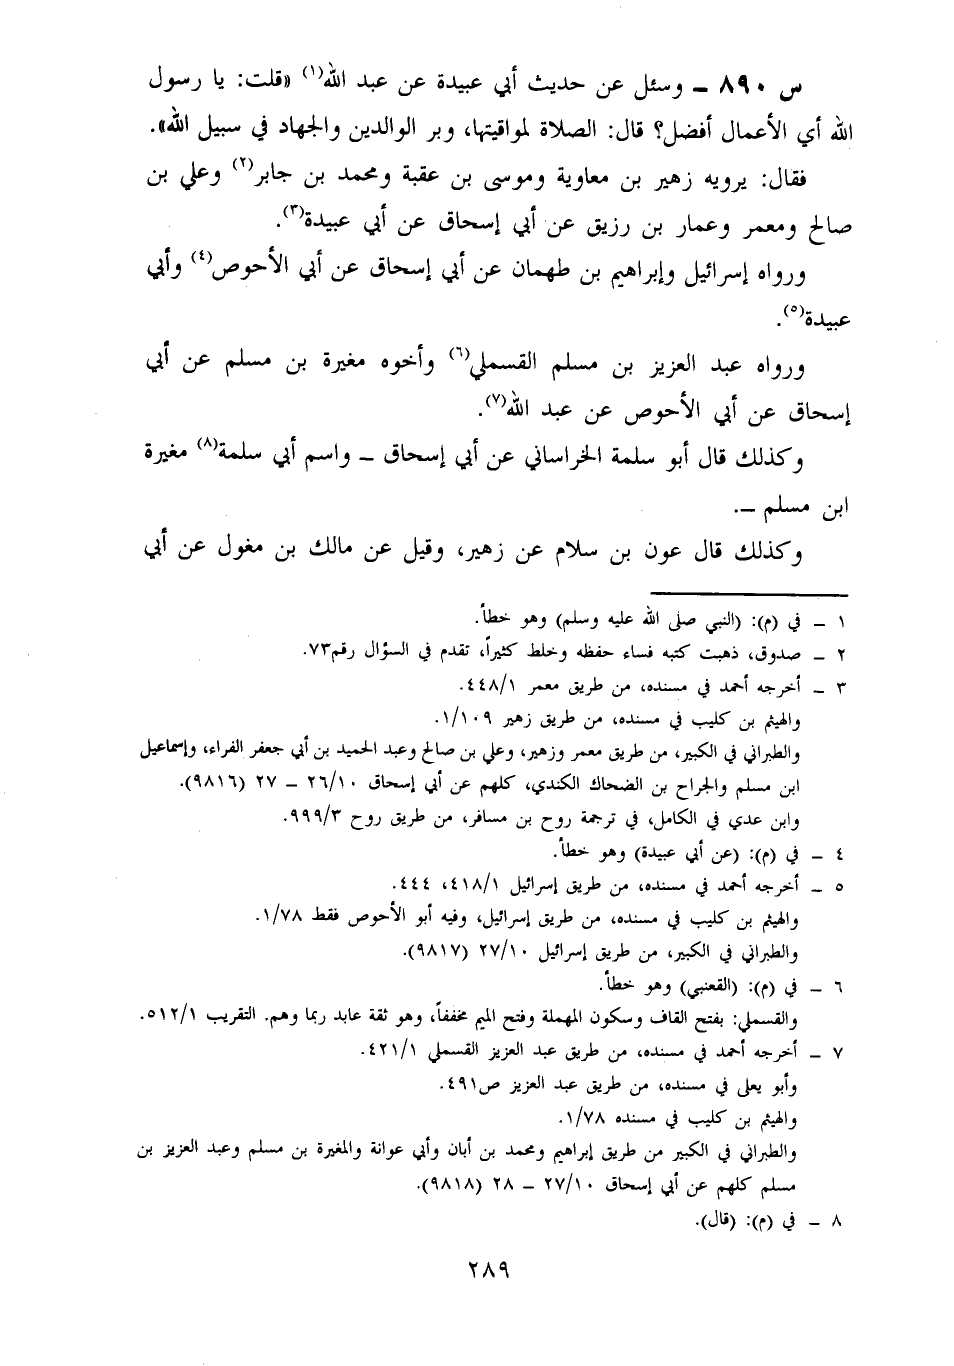 س ٨٩٠ ـ وسئل عن حديث أبي عبيدة عن عبد الله(١) «قلت: يا رسول
الله أي الأعمال أفضل؟ قال: الصلاة لمواقيتها، وبر الوالدين والجهاد في سبيل الله».
فقال: يرويه زهير بن معاوية وموسى بن عقبة ومحمد بن جابر(٢) وعلي بن
صالح ومعمر وعمار بن رزيق عن أبي إسحاق عن أبي عبيدة(٣).
ورواه إسرائيل وإبراهيم بن طهمان عن أبي إسحاق عن أبي الأحوص(٤) وأبي
عبيدة(٥).
ورواه عبد العزيز بن مسلم القسملي(٦) وأخوه مغيرة بن مسلم عن أبي
إسحاق عن أبي الأحوص عن عبد الله(٧).
وكذلك قال أبو سلمة الخراساني عن أبي إسحاق ـ واسم أبي سلمة(٨) مغيرة
ابن مسلم ـ.
وكذلك قال عون بن سلام عن زهير، وقيل عن مالك بن مغول عن أبي
١ ـ في (م): (النبي صلى الله عليه وسلم) وهو خطأ.
٢ ـ صدوق، ذهبت كتبه فساء حفظه وخلط كثيراً، تقدم في السؤال رقم٧٣.
٣ ـ أخرجه أحمد في مسنده، من طريق معمر ٤٤٨/١.
والهيثم بن كليب في مسنده، من طريق زهير ١/١٠٩.
والطبراني في الكبير، من طريق معمر وزهير، وعلي بن صالح وعبد الحميد بن أبي جعفر الفراء، وإسماعيل
ابن مسلم والجراح بن الضحاك الكندي، كلهم عن أبي إسحاق ٢٦/١٠ ـ ٢٧ (٩٨١٦).
وابن عدي في الكامل، في ترجمة روح بن مسافر، من طريق روح ٩٩٩/٣.
٤ ـ في (م): (عن أبي عبيدة) وهو خطأ.
٥ ـ أخرجه أحمد في مسنده، من طريق إسرائيل ٤١٨/١، ٤٤٤.
والهيثم بن كليب في مسنده، من طريق إسرائيل، وفيه أبو الأحوص فقط ١/٧٨.
والطبراني في الكبير، من طريق إسرائيل ٢٧/١٠ (٩٨١٧).
٦ ـ في (م): (القعنبي) وهو خطأ.
والقسملي: بفتح القاف وسكون المهملة وفتح الميم مخففاً، وهو ثقة عابد ربما وهم. التقريب ٥١٢/١.
٧ ـ أخرجه أحمد في مسنده، من طريق عبد العزيز القسملي ٤٢١/١.
وأبو يعلى في مسنده، من طريق عبد العزيز ص٤٩١.
والهيثم بن كليب في مسنده ١/٧٨.
والطبراني في الكبير من طريق إبراهيم ومحمد بن أبان وأبي عوانة والمغيرة بن مسلم وعبد العزيز بن
مسلم كلهم عن أبي إسحاق ٢٧/١٠ ـ ٢٨ (٩٨١٨).
٨ ـ في (م): (قال).
٢٨٩